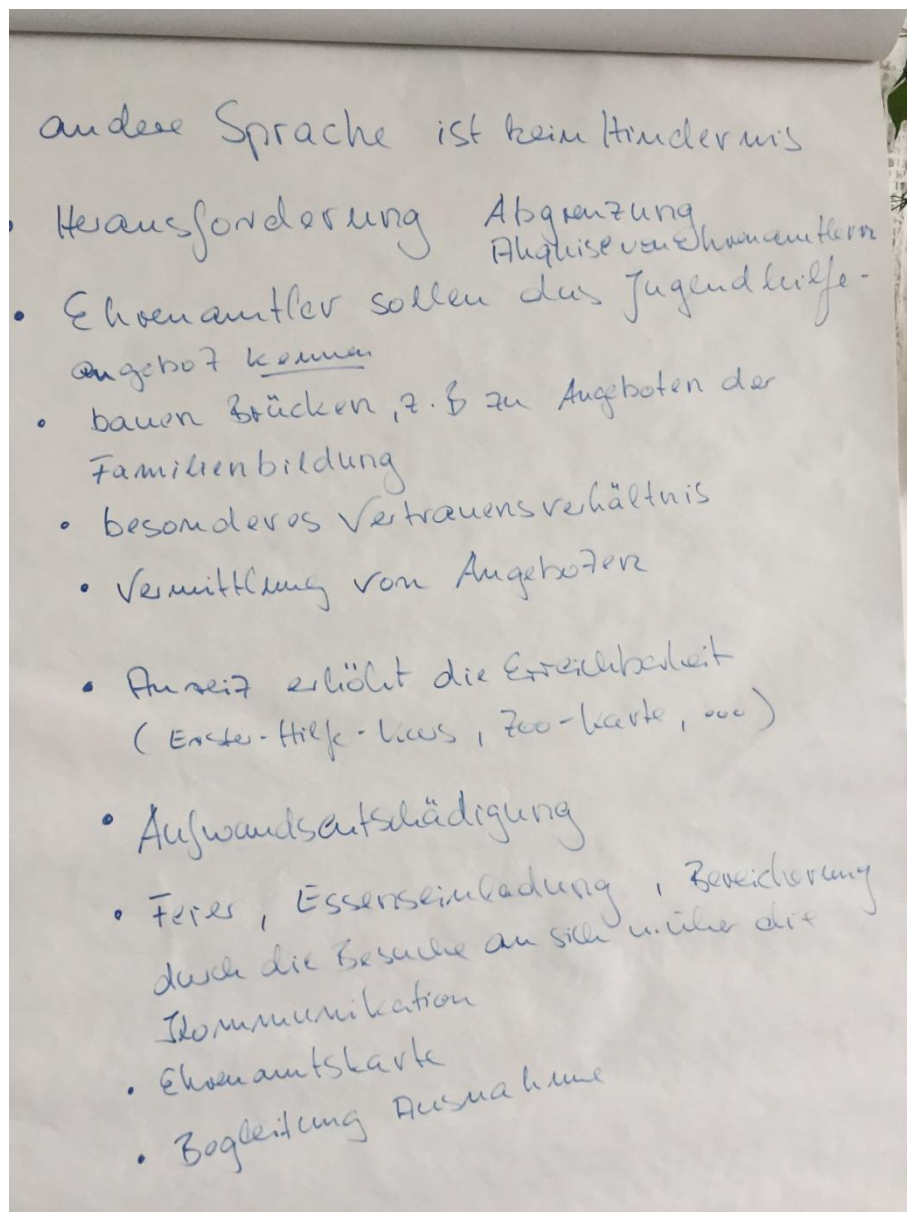 andere Sprache ist kein Hindernis
• Herausforderung Abgrenzung
Akquise von Ehrenamtlern
• Ehrenamtler sollen das Jugendhilfe-
angebot kennen
• bauen Brücken, z.B zu Angeboten der
Familienbildung
• besonderes Vertrauensverhältnis
• Vermittlung von Angeboten
• Anreiz erhöht die Erreichbarkeit
(Erste-Hilfe-Kurs, Zoo-Karte, ...)
• Aufwandsentschädigung
• Feier, Essenseinladung, Bereicherung
durch die Besuche an sich u. über die
Kommunikation
• Ehrenamtskarte
• Begleitung Ausnahme